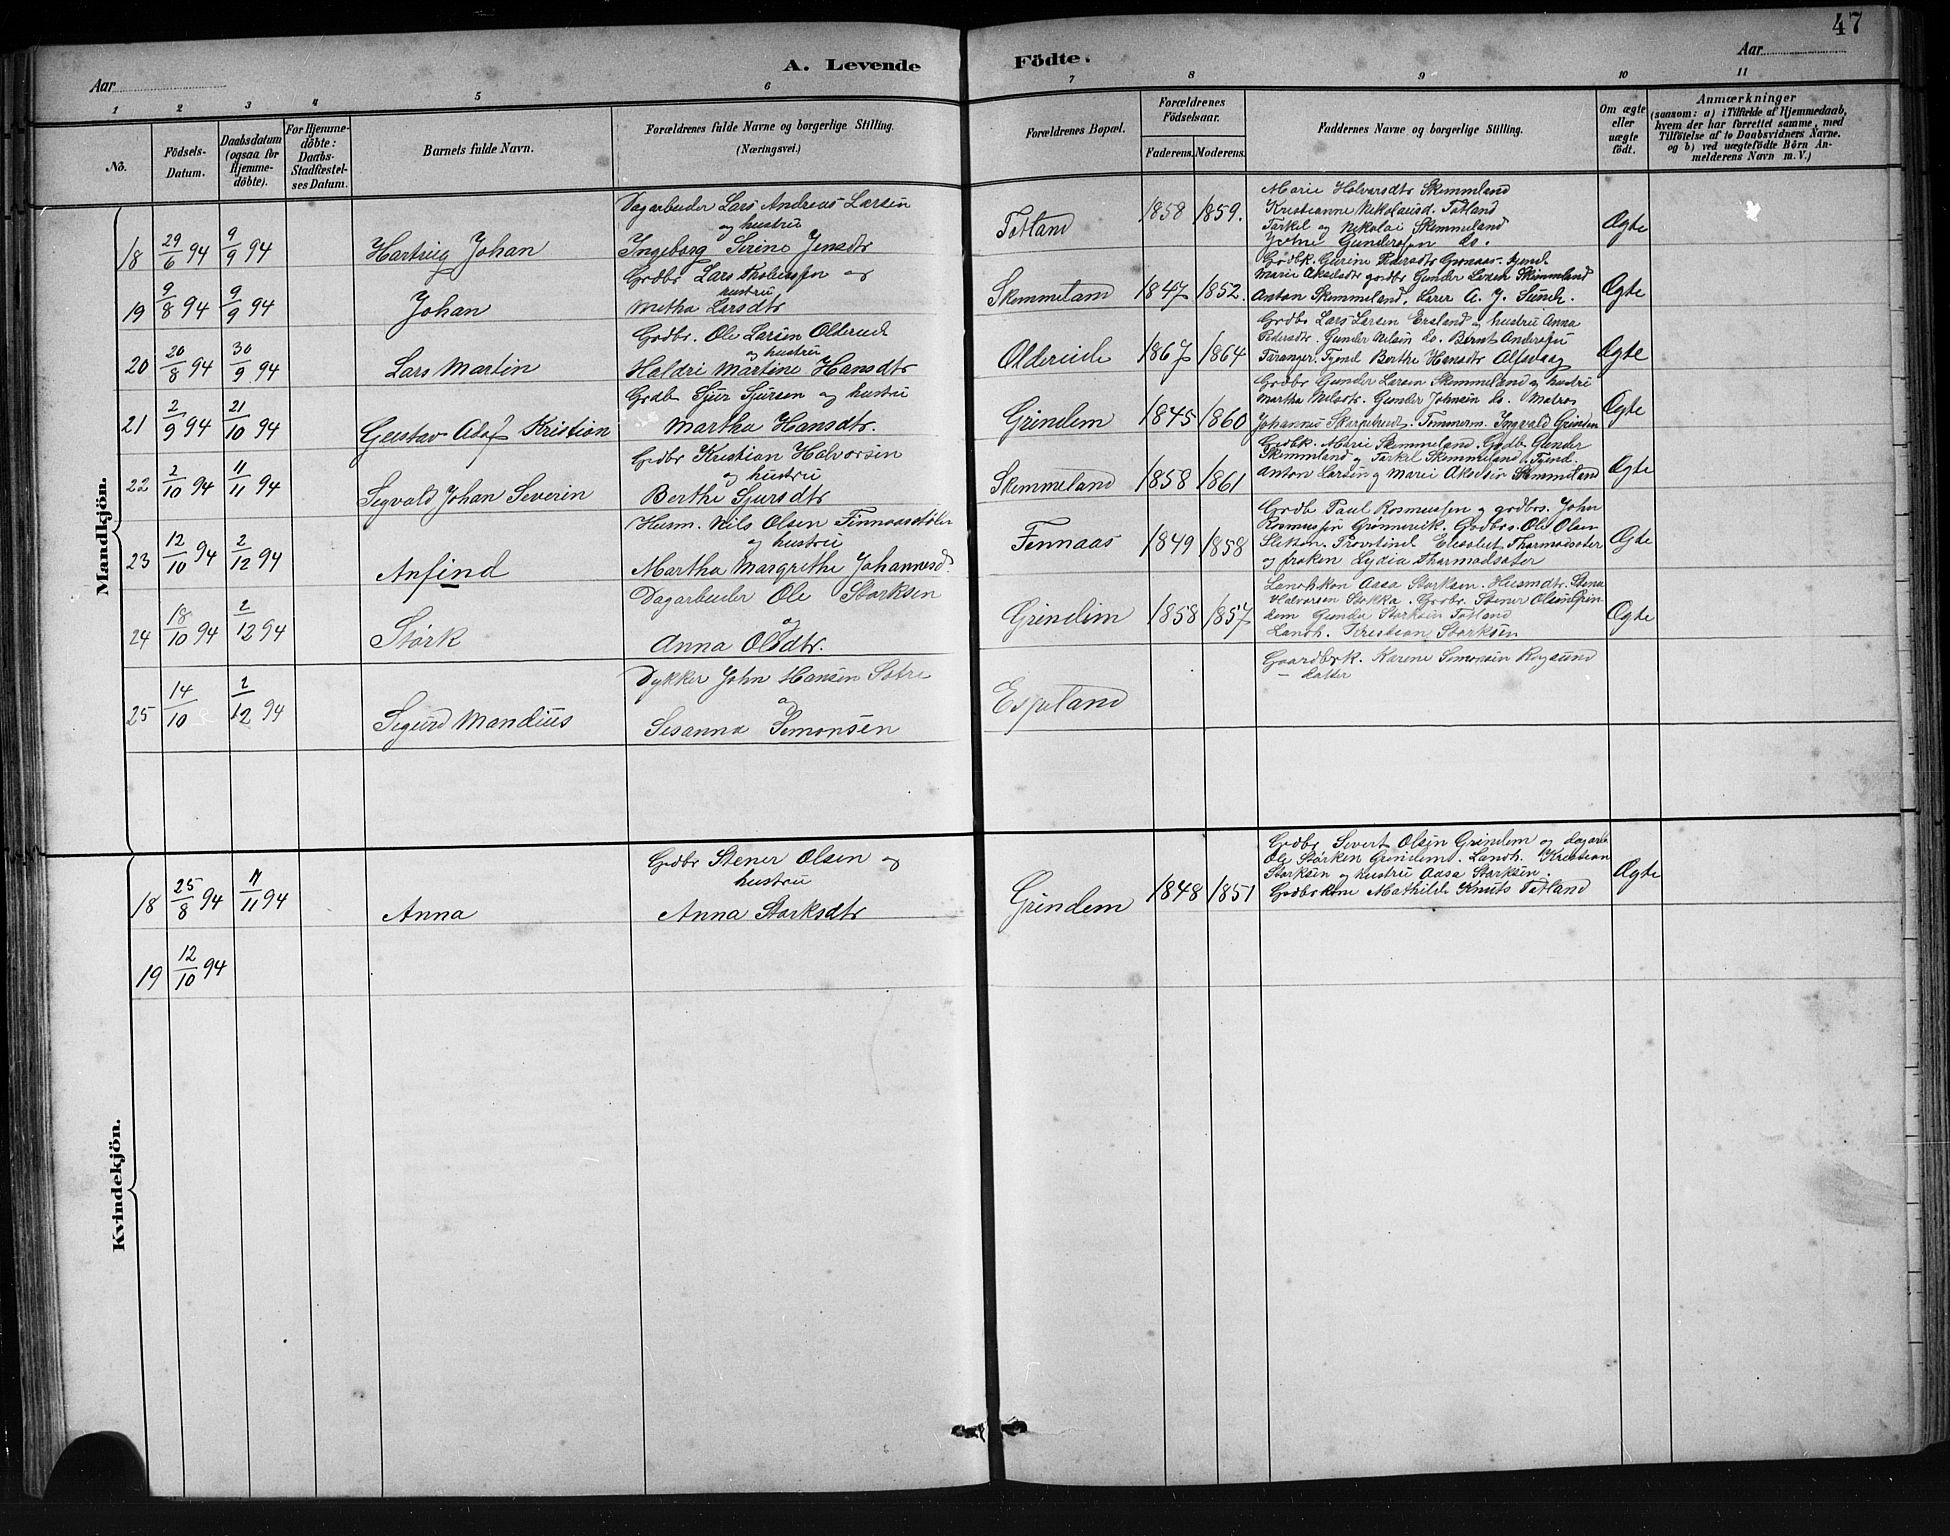 47
Aar
A. Levende
Födte.
Aar
1 2 3 4 5 6 7 8 9 10 11
No.
Födsels-
Datum.
Daabsdatum
(ogsaa for
Hjemme-
döbte).
For Hjemme-
döbte:
Daabs-
Stadfæstel-
ses Datum.
Barnets fulde Navn.
Forældrenes fulde Navne og borgerlige Stilling.
(Næringsvei.)
Forældrenes Bopæl.
Forældrenes
Födselsaar.
Faderens. Moderens.
Faddernes Navne og borgerlige Stilling.
Om ægte
eller
uægte
födt.
Anmærkninger
(saasom: a) i Tilfælde af Hjemmedaab,
hvem der har forrettet samme, med
Tilföielse af to Daabsvidners Navne.
og b) ved uægtefödte Börn An-
melderens Navn m. V.)
Mandkjön.
18 29/6 94 9/9 94 Hartvig Johan
Dagarbeider Lars Andreas Larsen
og hustru
Ingeborg Serine Jensdtr
Totland 1858 1859.
Marie Halvarsdtr Skemmland
Kristianne Nikolaisd. Totland
Tarkil og Nikolai Skemmeland
Gundersen do.
Ægte
19 9/8 94 9/9 94 Johan
Grdbr Lars og
hustru
Metha Larsdtr
Skemmelam 1847 1852.
Gødbk. Gurine Pedersdtr
Marie Akseldtr gardbr Gunder Larsen Skemmland
Anton Skemmeland. Lærer A. J. Sunde.
Ægte
20 20/8 94 30/9 94 Lars Martin
Grdbr. Ole Larsen Oldereide
og hustru
Haldri Martine Hansdtr
Oldereide 1867 1864
Grdbr Lars Larsen Ersland og hustru Anna
Petersdtr. Gunder Nilsen do. Bernt Andersen
Taranger. Tjend Berthe Hansdtr
Ægte
21 2/9 94 21/10 94 Gustav Adof Kristian
Grdb Sjur Sjursen og hustru
Martha Hansdtr.
Grindem 1845 1860
Grdbr Gunder Larsen Skemmeland og hustru
Martha Nilsdtr. Gunder Johnsen do. Matros
Johannes Timmerm. Ingvald Grindem
Ægte
22 2/10 94 11/11 94 Segvald Johan Severin
Grdbr Kristian Halvorsen
og hustru
Berthe Sjursdtr
Skemmeland 1858 1861
Grdbk. Marie Skemmeland. Grdbr Gunder
Skemmland og Tarkil Skemmeland. Tjend.
Anton Larsen og Marie Skemmeland
Ægte
23 12/10 94 2/12 94 Anfind
Husm. Nils Olsen Finnaasstølen
og hustru
Martha Margrethe Johannesd.
Finnaas 1849 1858
Grdb Paul Rasmussen og grdbrs. John
Rasmussen Grønnevik. Grdbrs. Ole Olsen
Elisabet Tharmodsæter
og frøken Lydia Tharmodsæter
Ægte
24 18/10 94 2/12 94 Størk
Dagarbeider Ole Storksen
og
Anna Olsdtr.
Grindem 1858 1857
Landh.kon Aasa Storksen. Husmdtr. Stena
Halvorsen Stokka. Grdbr. Stener Olsen Grin
dem Gunda Storksen Totland
Landh. Kristian Storksen
Ægte
25 14/10 2/12 94 Sigurd Mandius
Dykker John Hansen Sotre
og
Sesanna Simonsen
Espeland
Gaardbrk. Karene Simonsen Røgsund
— datter
Kvindekjön.
18 25/8 94 11/11 94 Anna
Grdbr Stener Olsen og
hustru
Anna Storksdtr
Grindem 1848 1851
Grdbr Sivert Olsen Grindem og dagarb
Ole Størksen Grindem. Landh. Kristian
Storksen og hustru Aasa Storksen.
Grdbrkone Mathilde Knuts Totland
Ægte
19 12/10 94